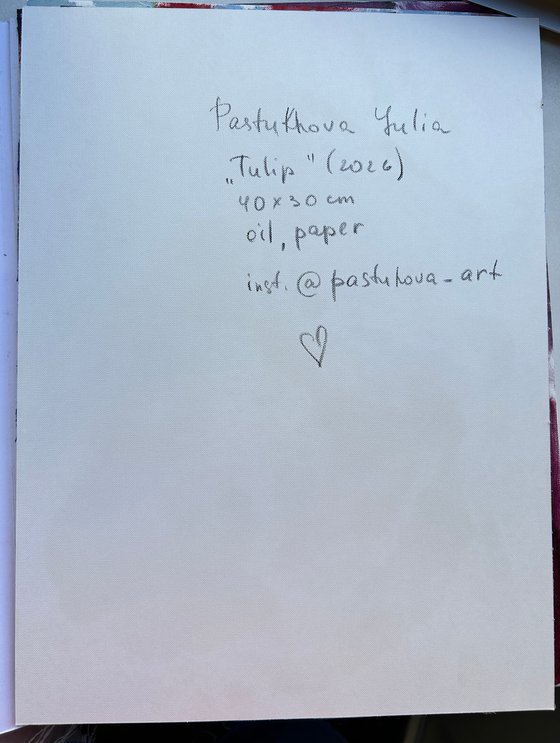 Pastukhova Yulia
„Tulip" (2026)
40x30 cm
oil, paper
inst. @pastuhova_art